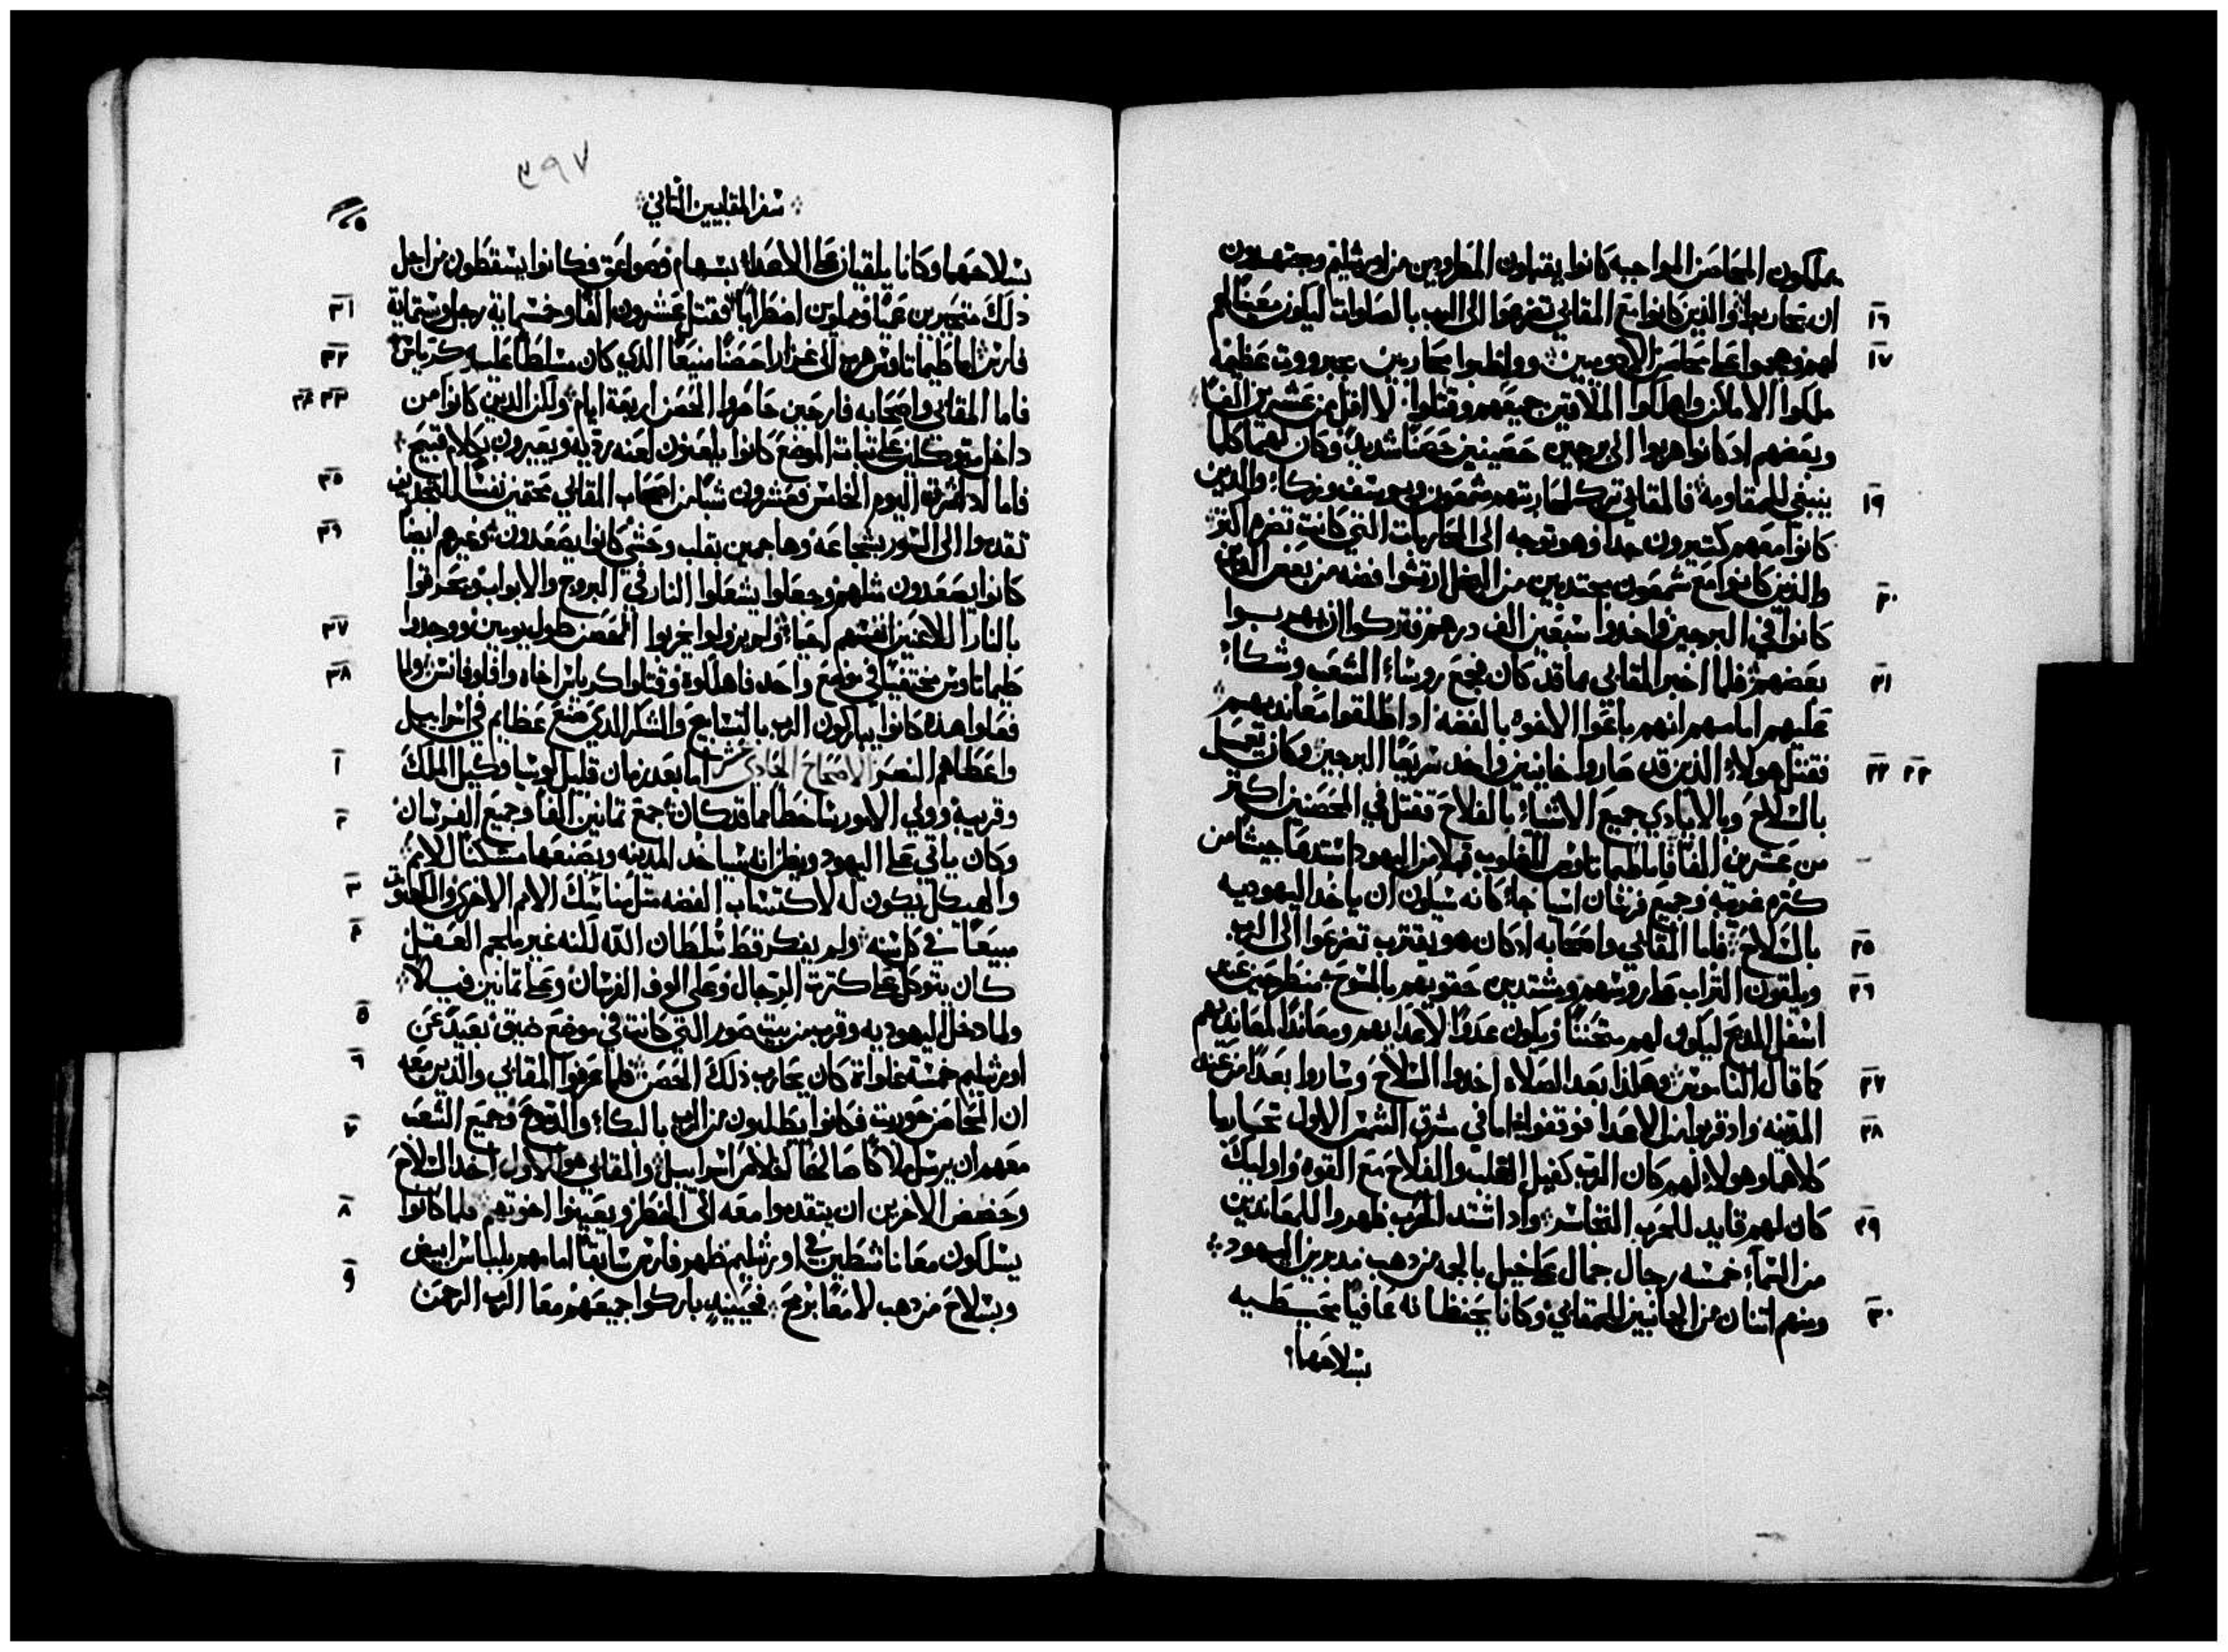 يملكون المحاصن الواجبه كانوا يقبلون المطرودين من اورشليم ويجتهدون
١٦ ان يحاربوا والذين كانوا مع المقابي تضرعوا الى الرب بالصلوات ليكون معينًا لهم
١٧ لهم وهجموا على محاصن الادوميين وواظبوا محاربين بجبرووت عظيمه
ملكوا الاماكن واهلكوا الملاقين جميعهم وقتلوا لا اقل من عشرين الفًا
وبعضهم اد كانوا هربوا الى برجين حصينين حصنًا شديدً وكان لهما كلما
١٩ ينبغي للمقاومة فالمقابي ترك لمحاربتهم شمعون ويوسف وزكا والدين
كانوا معهم كتيرون جدا وهو توجه الى المحاربات التي كانت تضرم اكتر
٢٠ والدين كانوا مع شمعون مجتدبين من البخل ارتشوا فضه من بعض الدين
كانوا في البرجين واخدوا سبعين الف درهم فتركوا ان يهربوا
٢١ بعضهم فلما اخبر المقابي بما قد كان فجمع روساء الشعب وشكا
عليهم امامهم انهم باعوا الاخوه بالفضه اد اطلقوا معانديهم
٢٢ ٢٣ فقتل هولاء الدين قد صاروا خاينين واخد سريعًا البرجين وكان يعمل
بالسلاح وبالايادي جميع الاشياء بالفلاح فقتل في المحصنين اكتر
من عشرين الفًا فاما طيماتاوس المغلوب قبلا من اليهود استدعا جيشًا من
كترة غريبه وجميع فرسان اسيا جاء كانه سيكون ان ياخد اليهوديه
٢٥ بالسلاح فاما المقابي واصحابه اد كان هو يقترب تضرعوا الى الرب
٢٦ ويلقون التراب على روسهم ومشتدين حقويهم بالمسوح منطرحين عند
اسفل المدبح ليكون لهم متحننًا ويكون عدوًا لاعدايهم ومعاندًا لمعانديهم
٢٧ كما قال الناموس وهكدا بعد الصلاه اخدوا السلاح وساروا بعدًا من عنه
٢٨ المدينه واد قربوا من الاعدا فوقفوا اما في شرق الشمس الاول تحاربا
كلاهما وهولاء لهم كان الرب كفيل الغلب والفلاح مع القوه واوليك
٢٩ كان لهم قايد للحرب التجاسر واد اشتد الحرب ظهروا للمعاندين
من السماء خمسه رجال جمال على خيل بالجمه من دهب مدبرين اليهود
٣٠ ومنهم اتنان من الجانبين للمقابي وكانا يحفظانه عافيًا بمحيطيه
بسلاحهما
٣٩٧
سفر المقابيين التاني
بسلاحهما وكانا يلقيان على الاعداء بسهام وصواعق فكانوا يسقطون من اجل
٣١ دلك متحيرين عميًا ومملوين اضطرابًا فقتل عشرون الفًا وخمسماية رجل وستماية
٣٢ فارس اما طيماتاوس هرب الى غزارا حصنًا منيعًا الدي كان متسلطًا عليه كرياس
٣٣ ٣٤ فاما المقابي واصحابه فارحين حاصروا الحصن اربعة ايام ولكن الدين كانوا من
داخل متوكلين على تبات الموضع كانوا يلعنون لعنه رديه ويعيرون بكلام قبيح
٣٥ فاما اد اشرق اليوم الخامس فعشرون شبًا من اصحاب المقابي محتمين نفسًا للتجديف
٣٦ تقدموا الى السور بشجاعه وهاجمين بقلب وحشي كانوا يصعدون وغيرهم ايضا
كانوا يصعدون متلهم وجعلوا يشعلوا النار في البروج والابواب ويحرقوا
٣٧ بالنار اللاعنين انفسهم احيا ولم يزولوا يخربوا الحصن طول يومين ووجدوا
٣٨ طيماتاوس مختفيًا في موضع واحد فاهلكوه وقتلوا كرياس اخاه وافلوفانس ولما
فعلوا هذه كانوا يباركون الرب بالتسابيح والشكر الدي صنع عظايم في اسراييل
١ واعطاهم النصر الاصحاح الحادي عشر اما بعد زمان قليل لوسيا وكيل الملك
٢ وقريبه وولي الامور ساخطًا مما قد كان جمع تمانين الفًا وجميع الفرسان
وكان ياتي على اليهود ويظن انه سياخد المدينه ويصنعها مسكنًا للامم
٣ والهيكل يكون له لاكتساب الفضه متل مناسك الامم الاخرى والكهنوت
٤ مبيعًا في كل سنه ولم يفكر قط سلطان الله لكنه غير ملجم العقل
كان يتوكل على كترت الرجال وعلى الوف الفرسان وعلى تمانين فيلا
٥ ولما دخل اليهوديه وقرب من بيت صور التي كانت في موضع ضيق بعيد عن
٦ اورشليم خمسة غلوات كان يحارب دلك الحصن فلما عرفوا المقابي والدين معه
٧ ان المحاصن حوربت فكانوا يطلبون من الرب بالبكاء والدموع وجميع الشعب
معهم ان يرسل ملاكًا صالحًا لخلاص اسراييل والمقابي هو الاول اخد السلاح
٨ وحضض الاخرين ان يتقدموا معه الى الخطر ويعينوا اخوتهم فلما كانوا
يسلكون معا ناشطين في اورشليم ظهر فارس سابقًا امامهم بلباس ابيض
٩ وبسلاح من دهب لامعًا برمح فحينيد باركوا جميعهم معا الرب الرحمن